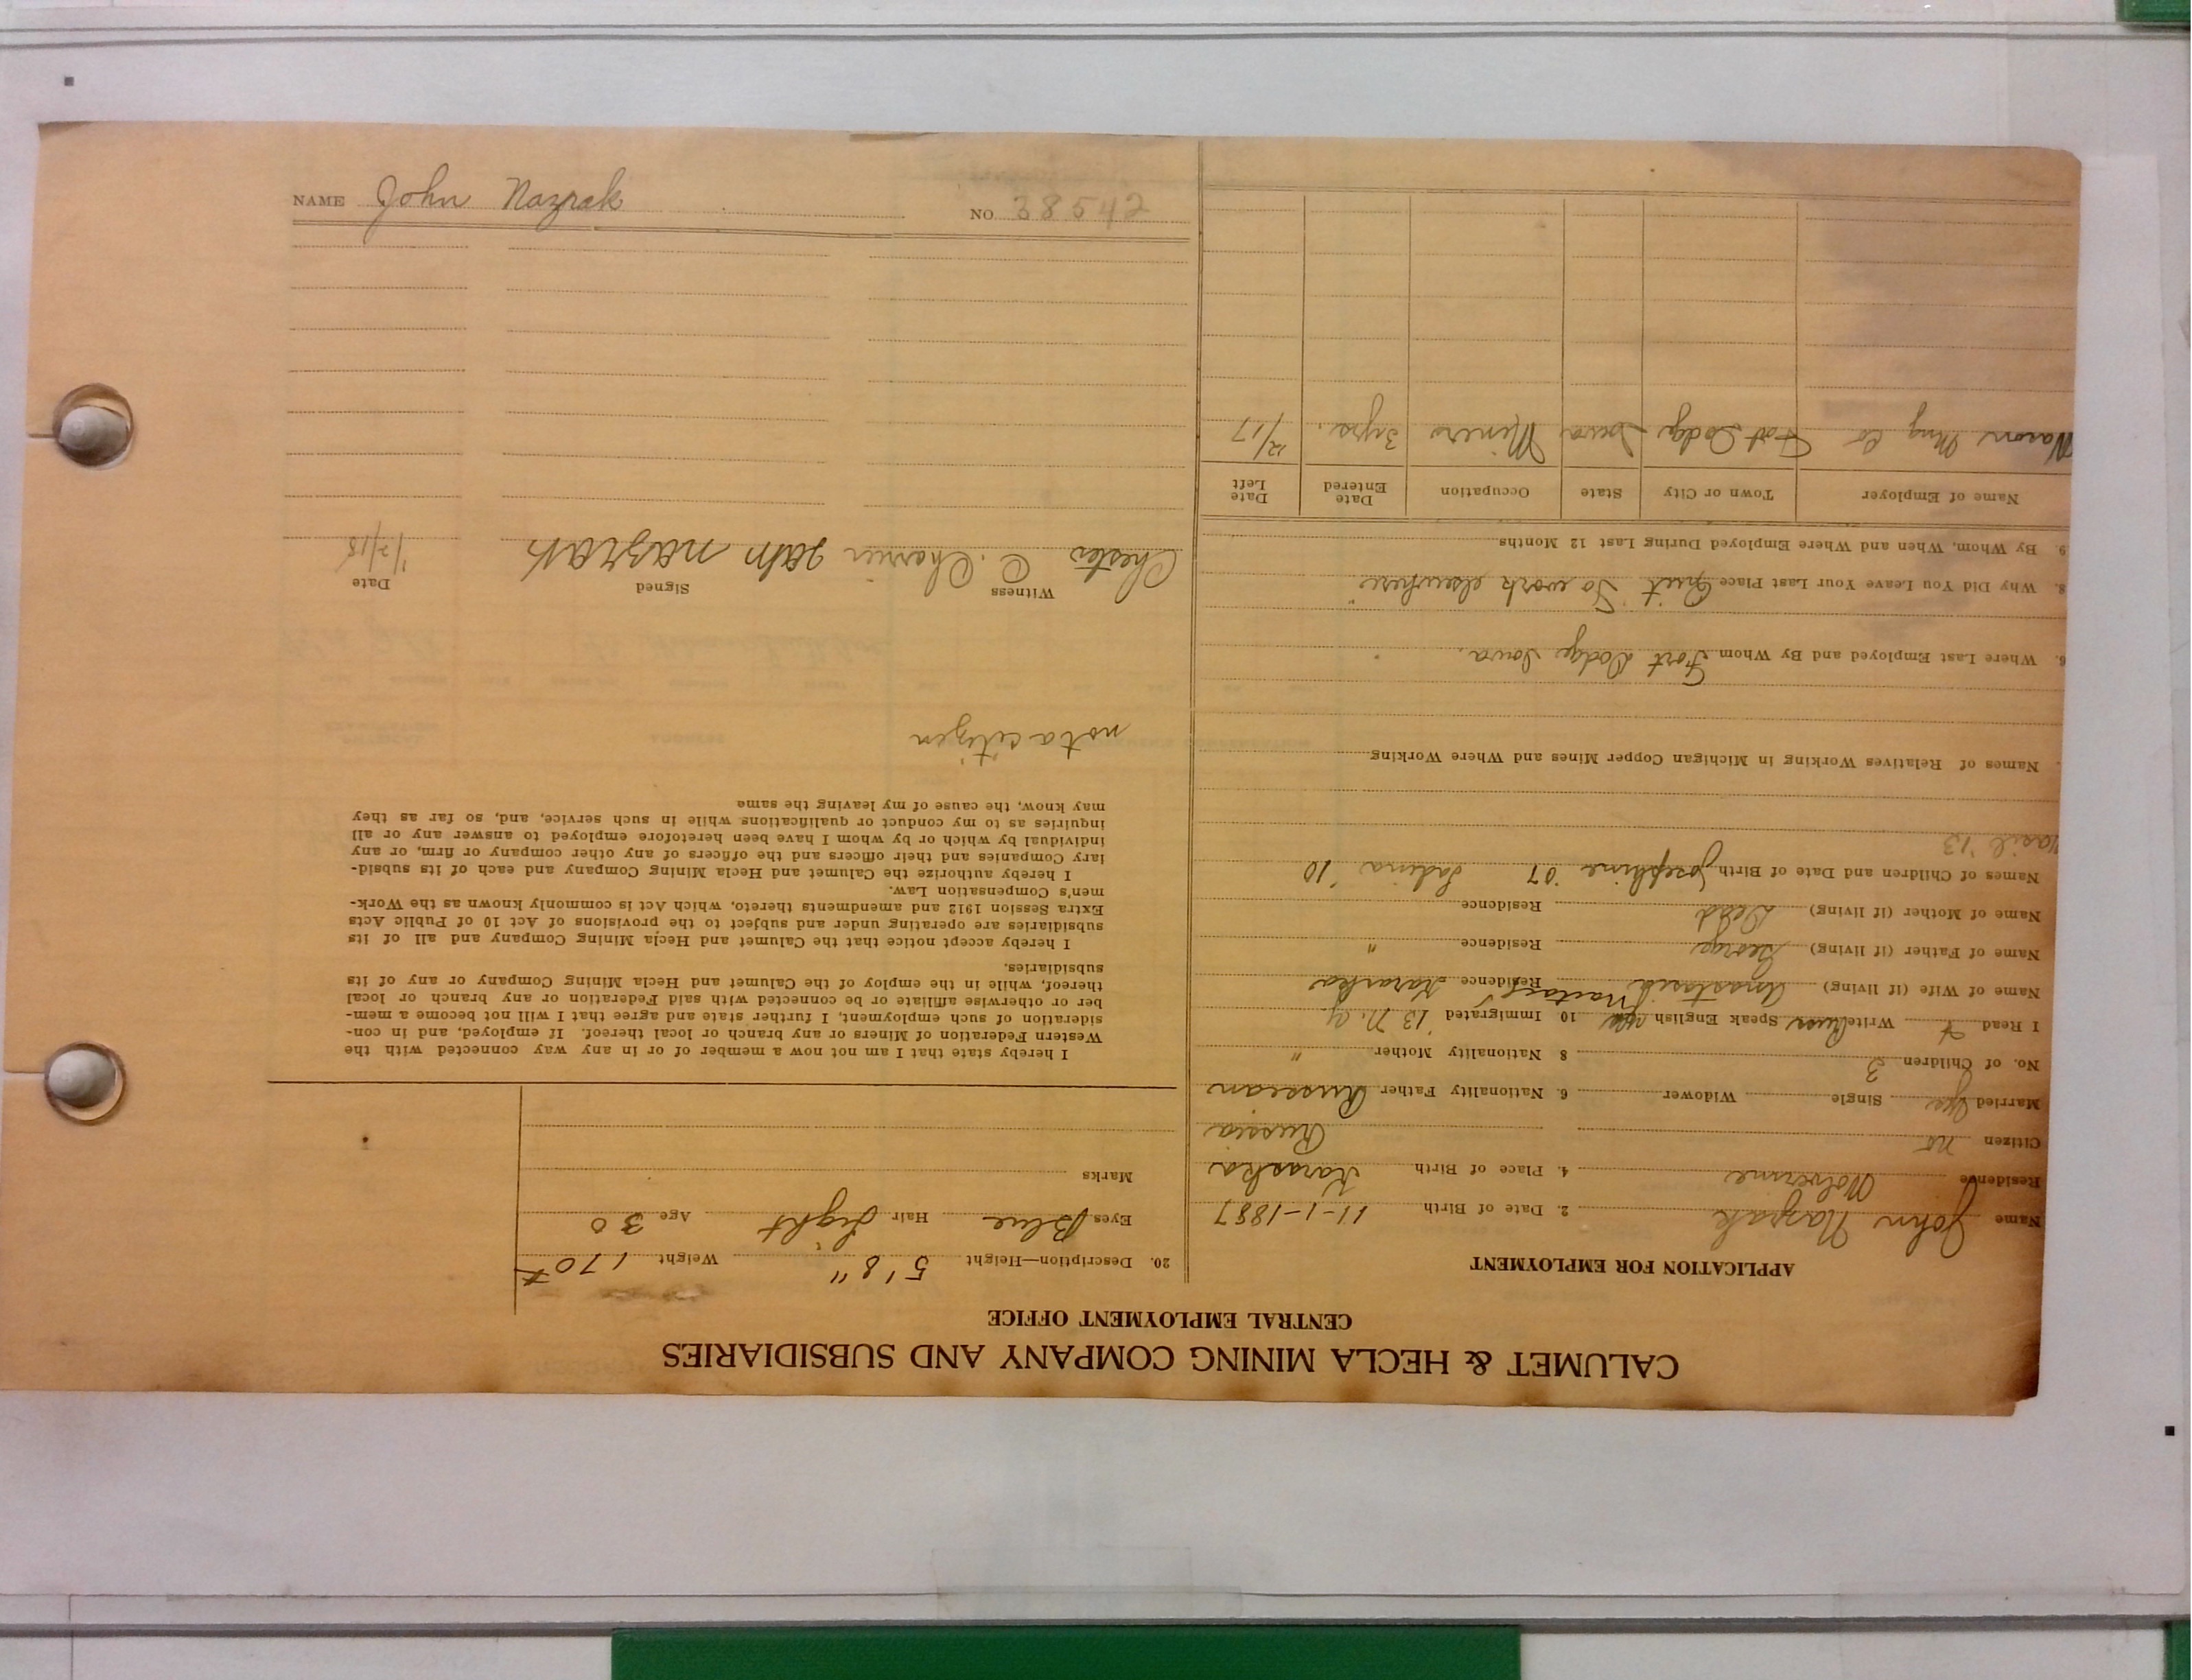 CALUMET & HECLA MINING COMPANY AND SUBSIDIARIES
CENTRAL EMPLOYMENT OFFICE
APPLICATION FOR EMPLOYMENT
Name John Nazrak 2. Date of Birth 11-1-1887
Residence Wolverine 4. Place of Birth Karaska
Citizen no Russia
Married yes Single Widower 6. Nationality Father Russian
No. of Children 3 8 Nationality Mother "
I Read Write Speak English 10 Immigrated '13 N.Y
Name of Wife (if living) Anastasia Residence Karaska
Name of Father (if living) George Residence "
Name of Mother (if living) Dead Residence
Names of Children and Date of Birth Josephine '07 '10
Vasil '13
Names of Relatives Working in Michigan Copper Mines and Where Working
6. Where Last Employed and By Whom Fort Dodge Iowa.
8. Why Did You Leave Your Last Place Quit "To work elsewhere"
9. By Whom, When and Where Employed During Last 12 Months
Name of Employer Town or City State Occupation Date Entered Date Left
Mng Co Fort Dodge Iowa Miner 3 yrs. 12/17
20. Description—Height 5' 8" Weight 170#
Eyes Blue Hair Light Age 30
Marks
I hereby state that I am not now a member of or in any way connected with the
Western Federation of Miners or any branch or local thereof. If employed, and in con-
sideration of such employment, I further state and agree that I will not become a mem-
ber or otherwise affiliate or be connected with said Federation or any branch or local
thereof, while in the employ of the Calumet and Hecla Mining Company or any of its
subsidiaries.
I hereby accept notice that the Calumet and Hecla Mining Company and all of its
subsidiaries are operating under and subject to the provisions of Act 10 of Public Acts
Extra Session 1912 and amendments thereto, which Act is commonly known as the Work-
men's Compensation Law.
I hereby authorize the Calumet and Hecla Mining Company and each of its subsid-
iary Companies and their officers and the officers of any other company or firm, or any
individual by which or by whom I have been heretofore employed to answer any or all
inquiries as to my conduct or qualifications while in such service, and, so far as they
may know, the cause of my leaving the same
not a citizen
Witness Signed Date
Chester C. nazrak 1/2/18
NAME John Nazrak NO 38542